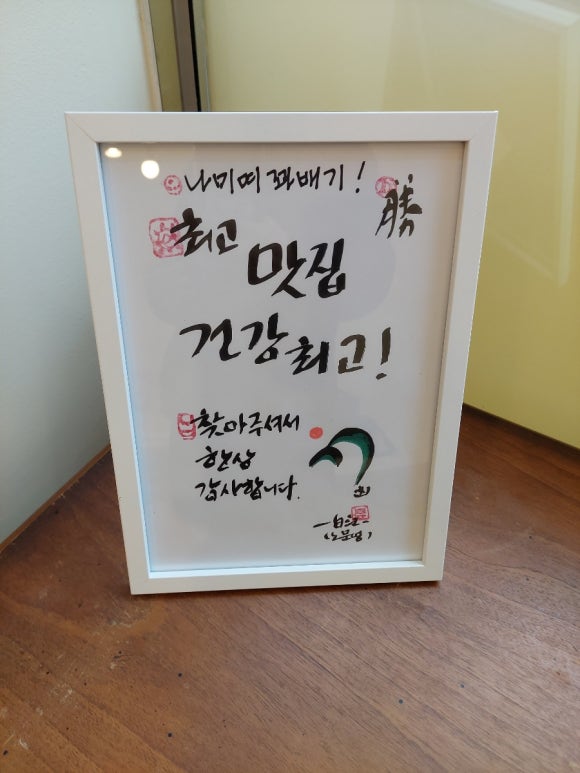 나미떼꽈배기!
勝
최고
맛집
건강최고!
찾아주셔서
한상
감사합니다.